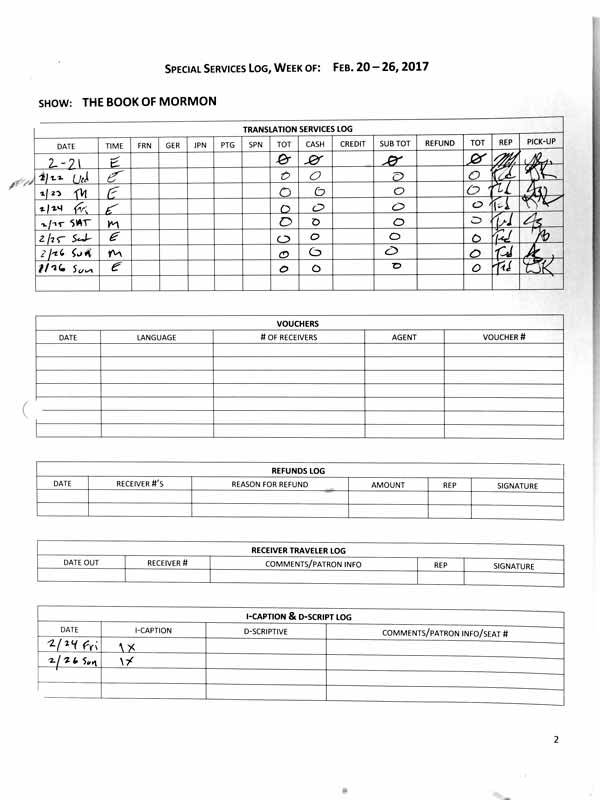 SPECIAL SERVICES LOG, WEEK OF: FEB. 20 – 26, 2017
SHOW: THE BOOK OF MORMON
TRANSLATION SERVICES LOG
DATE TIME FRN GER JPN PTG SPN TOT CASH CREDIT SUB TOT REFUND TOT REP PICK-UP
2-21 E 0 0 0 0
2/22 Wed E 0 0 0 0 Ted
2/23 TH E 0 0 0 0 Ted
2/24 Fri E 0 0 0 0 Ted
2/25 SAT M 0 0 0 0 Ted
2/25 Sat E 0 0 0 0 Ted
2/26 SUN M 0 0 0 0 Ted
2/26 Sun E 0 0 0 0 Ted
VOUCHERS
DATE LANGUAGE # OF RECEIVERS AGENT VOUCHER #
REFUNDS LOG
DATE RECEIVER #'S REASON FOR REFUND AMOUNT REP SIGNATURE
RECEIVER TRAVELER LOG
DATE OUT RECEIVER # COMMENTS/PATRON INFO REP SIGNATURE
I-CAPTION & D-SCRIPT LOG
DATE I-CAPTION D-SCRIPTIVE COMMENTS/PATRON INFO/SEAT #
2/24 Fri 1X
2/26 Sun 1X
2